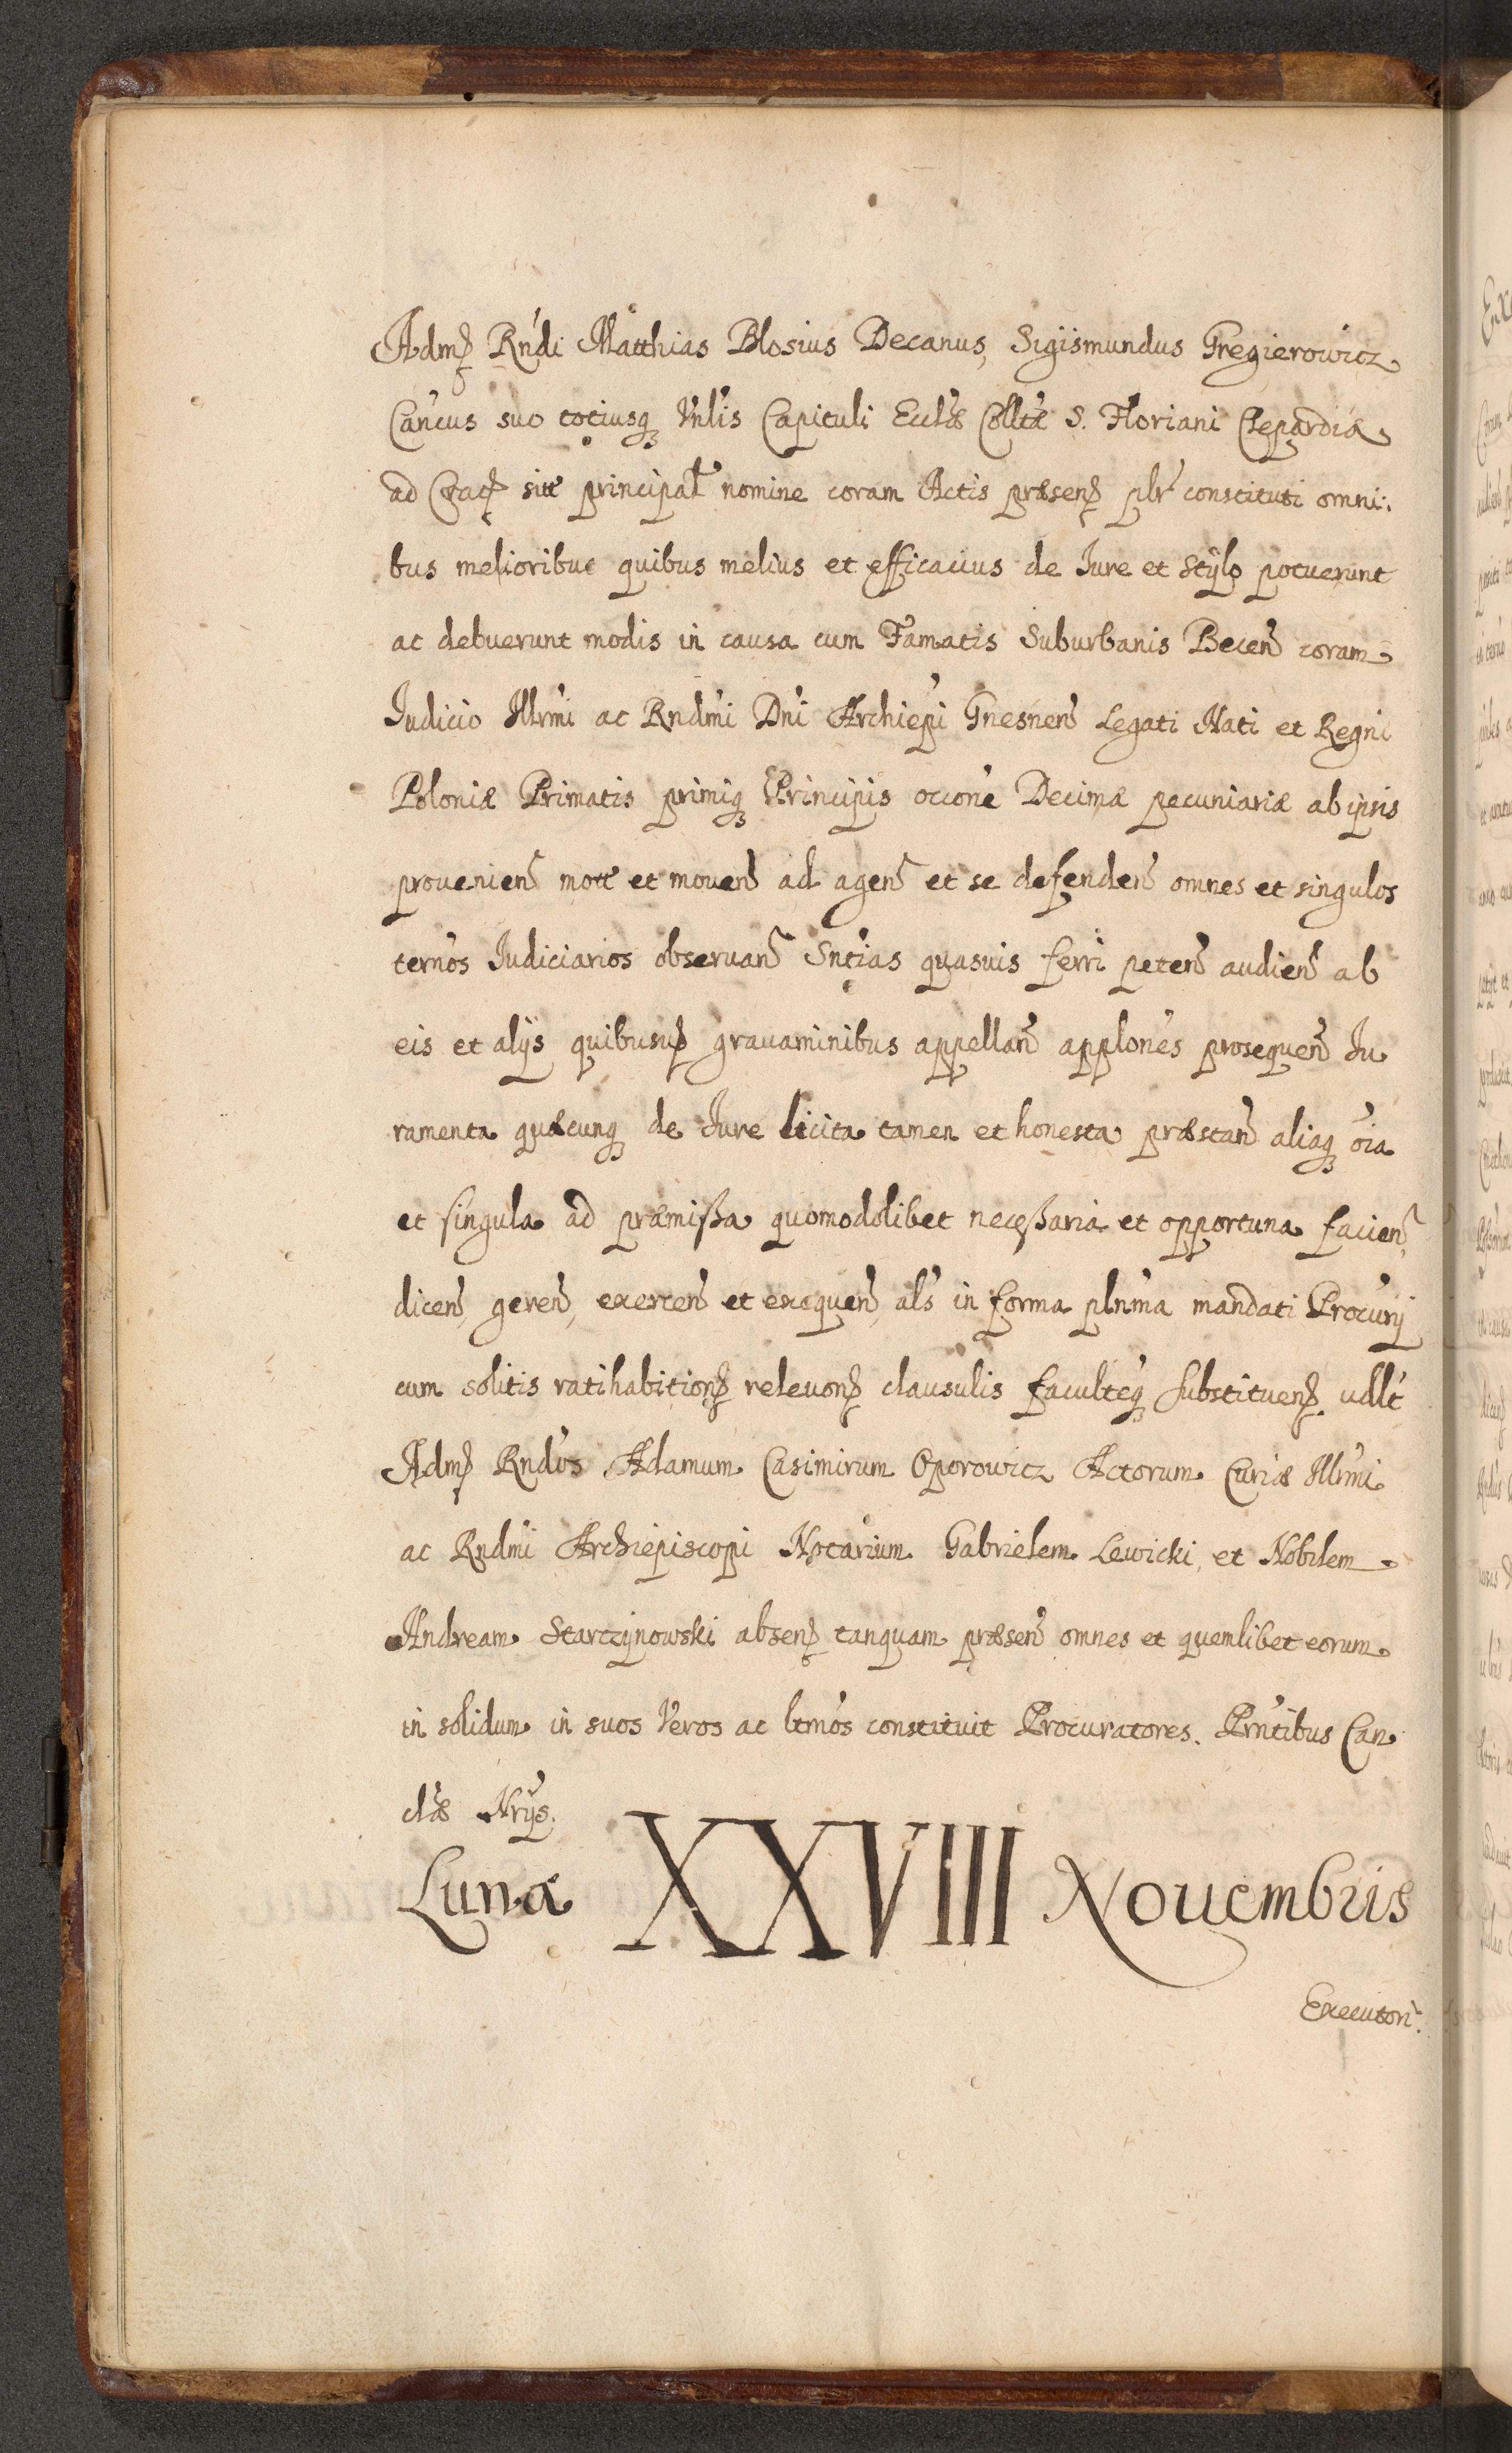 Admꝫ Rndi Matthias Blosius Decanus, Sigismundus Gregierowicz
Cancus suo totiusqꝫ Vnlis Capituli Ecclae Colltae S. Floriani Clepardiae
ad Cracꝫ sitt principal nomine coram Actis præsenꝫ plr constituti omni:
bus melioribus quibus melius et efficacius de Iure et Stÿlo potuerunt
ac debuerunt modis in causa cum Famatis Suburbanis Becen coram
Iudicio Illrmi ac Rndmi Dni Archiepi Gnesnen Legati Nati et Regni
Poloniæ Primatis primiqꝫ Principis occone Decimæ pecuniariæ ab ipsis
prouenien mott et mouen ad agen et se defenden omnes et singulos
ternos Iudiciarios obseruan Sntias quasuis ferri peten audien ab
eis et alÿs quibusuꝫ grauaminibus appellan applones prosequen Iu
ramenta quæcunqꝫ de Iure licita tamen et honesta præstan aliaqꝫ oia
et singula ad præmißa quomodolibet neceßaria et opportuna facien,
dicen, geren, exercen et exequen, als in forma plnma mandati Procurÿ
cum solitis ratihabitionꝫ releuonꝫ clausulis faculteqꝫ substituenꝫ vdlt
Admꝫ Rndos Adamum Casimirum Oporowicz Actorum Curiæ Illrmi
ac Rndmi Archiepiscopi Notarium Gabrielem Lewicki, et Nobilem
Andream Starczÿnowski absenꝫ tanquam præsen omnes et quemlibet eorum
in solidum in suos Veros ac ltmos constituit Procuratores. Prntibus Can
clæ Nrÿs.
Lunæ XXVIII Nouembris
Executori: